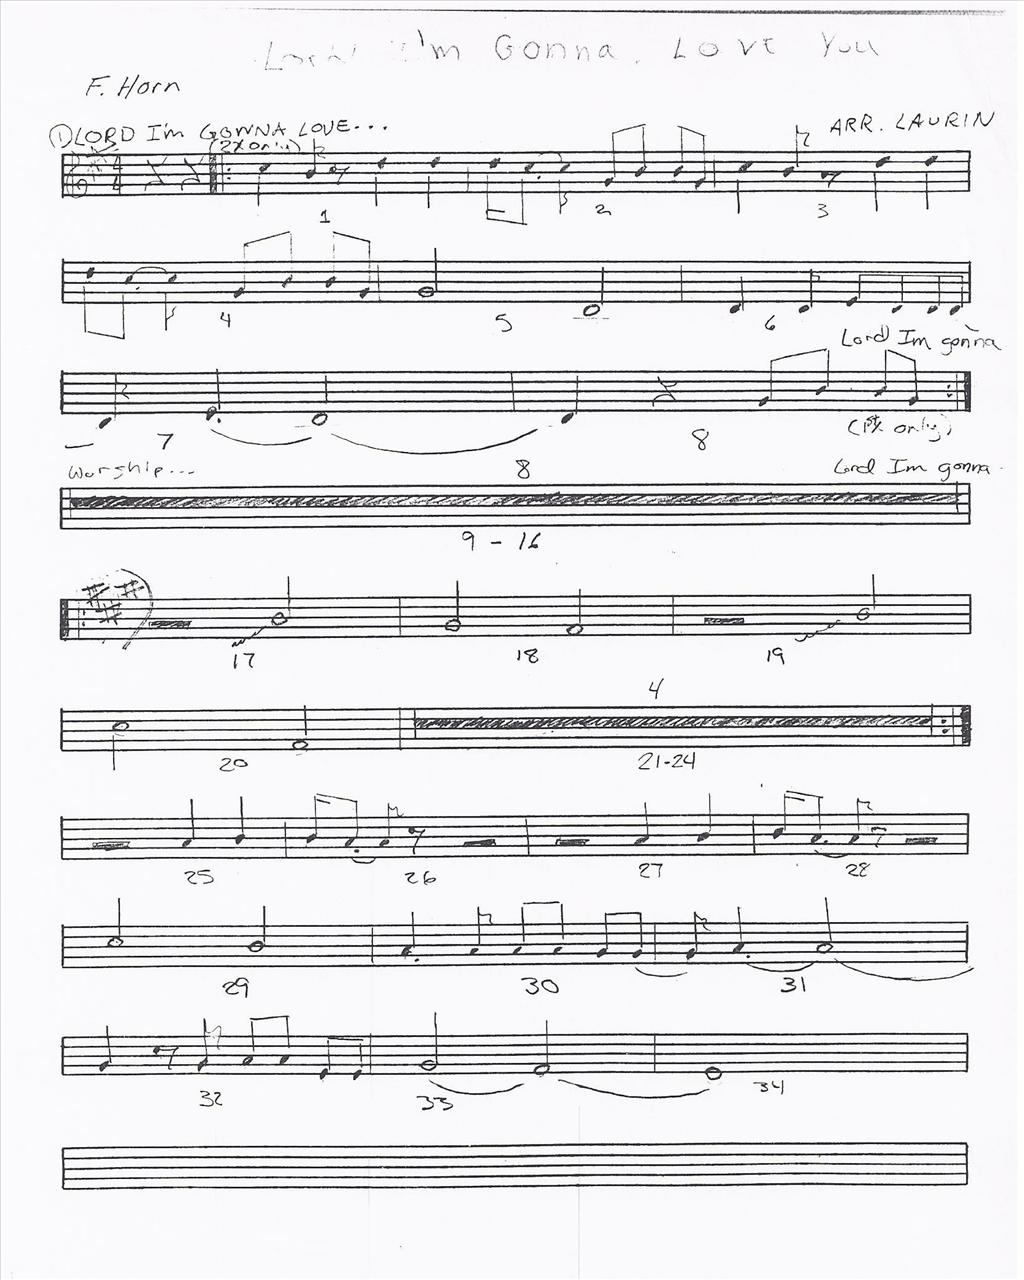 Lord I'm Gonna Love You
F. Horn
① LORD I'm GONNA LOVE...
ARR. LAURIN
(2x only)
4
4
1 2 3
4 5 6
Lord Im gonna
7 8
(1stx only)
Worship... 8 Lord Im gonna
9 - 16
17 18 19
4
20 21-24
25 26 27 28
29 30 31
32 33 34